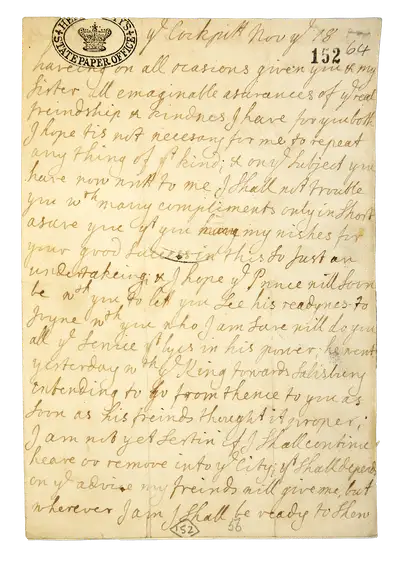 HER MAJESTY'S
STATE PAPER OFFICE
ye Cockpitt Nov ye 18
152 64
haveing on all ocasions given you & my
Sister all emaginable assurances of ye real
freindship & kindness I have for you both
I hope tis not necesary for me to repeat
any thing of yt kind; & on ye subject you
have now writt to me I shall not trouble
you wth many compliments only in short
asure you yt you have my wishes for
your good success in this so just an
undertakeing; & I hope ye Prince will soon
be wth you to let you see his readynes to
joyne wth you who I am sure will do you
all ye service yt lyes in his power; he went
yesterday wth ye King towards Salisbury
intending to go from thence to you as
soon as his freinds thought it proper;
I am not yet certin if I shall continue
heare or remove into ye City; yt shall depend
on ye advise my freinds will give me, but
wherever I am I shall be ready to shew
152 56